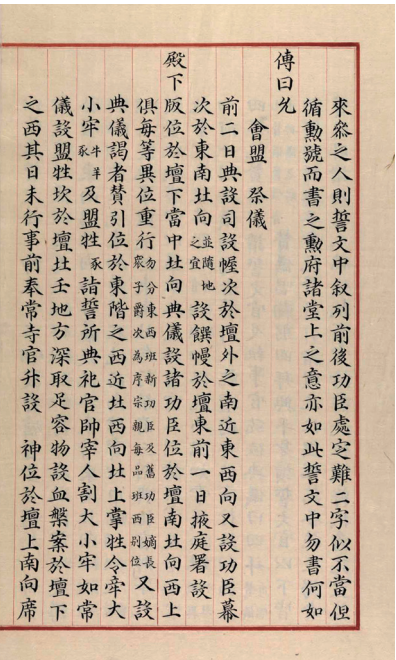 來叅之人則誓文中叙列前後功臣處定難二字似不當但
循勳號而書之勳府諸堂上之意亦如此誓文中勿書何如
傳曰允
會盟 祭儀
前二日典設司設幄次於壇外之南近東西向又設功臣幕
次於東南北向並隨地之宜設饌幔於壇東前一日掖庭署設
殿下版位於壇下當中北向典儀設諸功臣位於壇南北向西上
俱每等異位重行勿分東西班新功臣及舊功臣嫡長衆子爵次為序宗親每品班西別位又設
典儀謁者贊引位於東階之西近北西向北上掌牲令牽大
小牢牛羊豕及盟牲豕詣誓所典祀官帥宰人割大小牢如常
儀設盟牲坎於壇北壬地方深取足容物設血槃案於壇下
之西其日未行事前奉常寺官升設 神位於壇上南向席